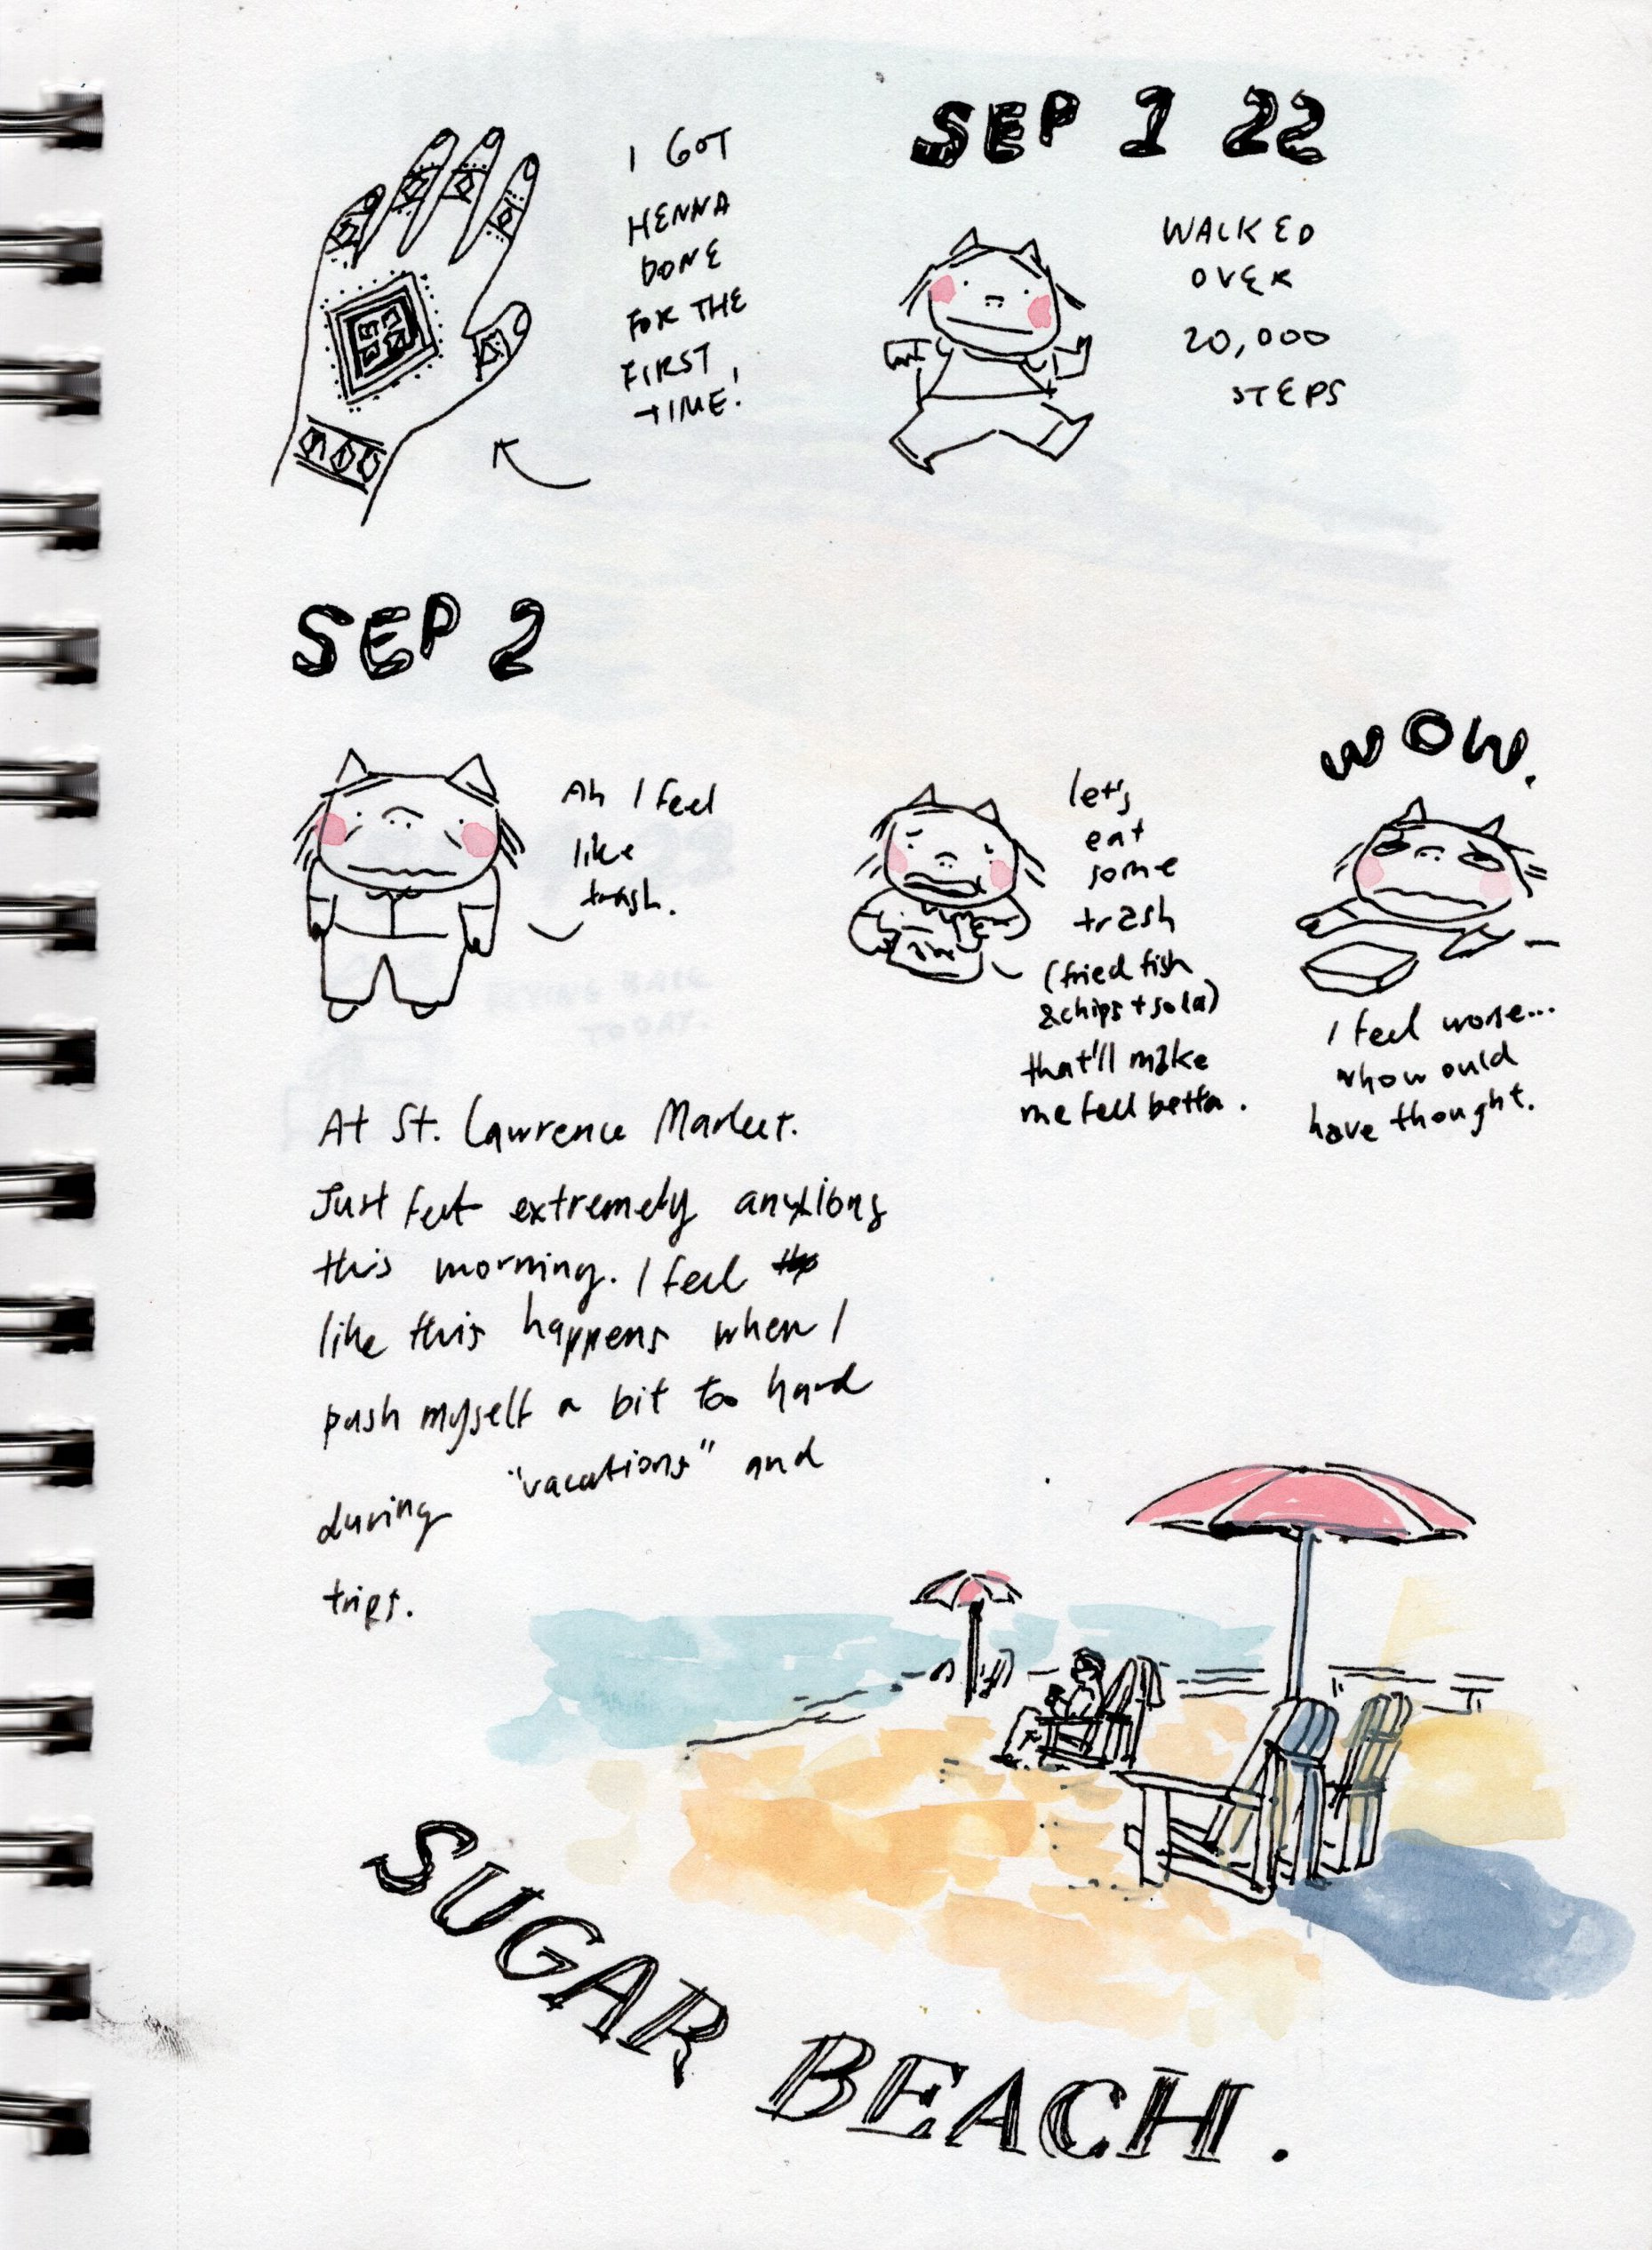 SEP 1 22
I GOT
HENNA
DONE
FOR THE
FIRST
TIME!
WALKED
OVER
20,000
STEPS
SEP 2
Ah I feel
like
trash.
let's
eat
some
trash
(fried fish
& chips + soda)
that'll make
me fell betta.
WOW.
I feel worse...
who would
have thought.
At St. Lawrence Market.
Just felt extremely anxious
this morning. I feel
like this happens when I
push myself a bit too hard
during "vacations" and
trips.
SUGAR BEACH.